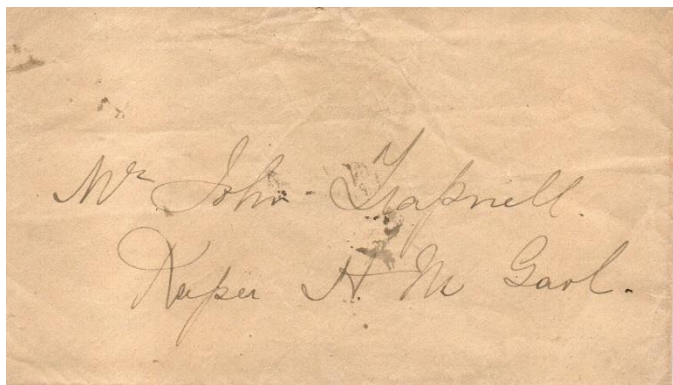 Mr John Trapnell.
Keeper H. M Gaol.